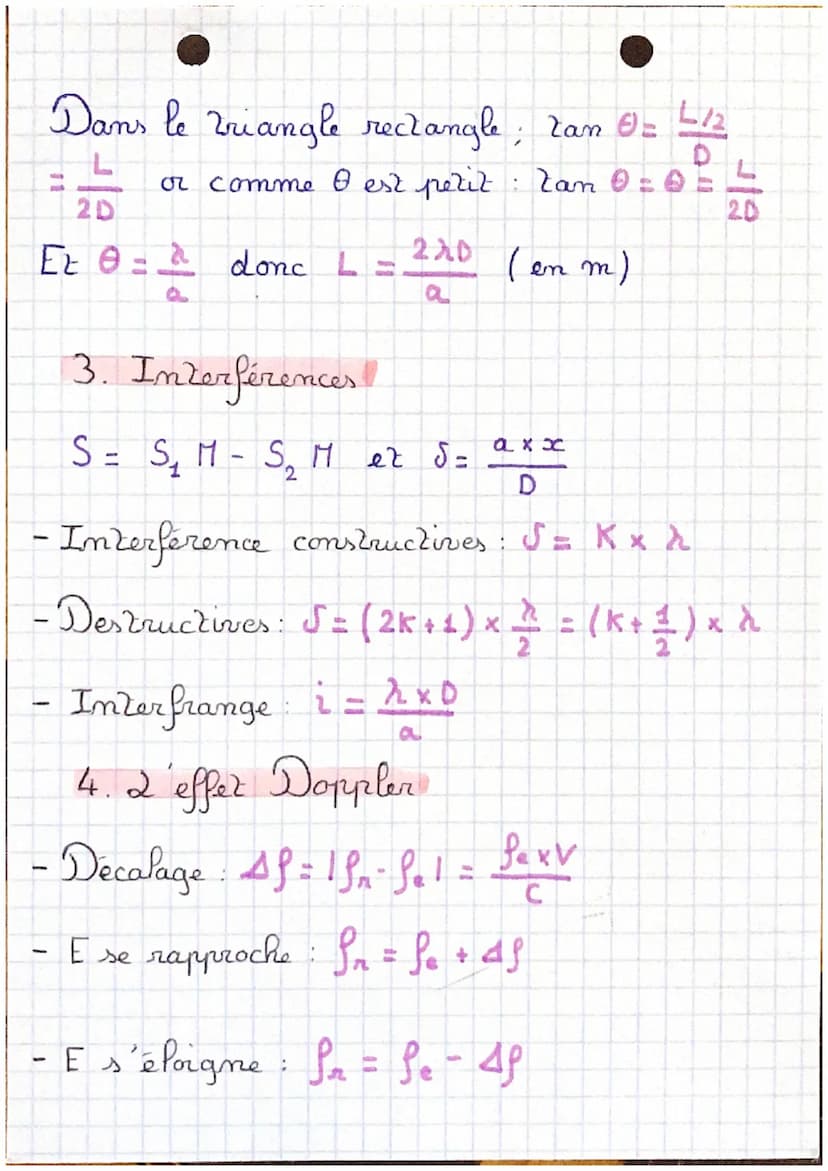 Dans le triangle rectangle ; tan θ = L/2 / D
= L / 2D or comme θ est petit : tan θ = θ = L / 2D
Et θ = λ / a donc L = 2λD / a (en m)
3. Interférences
S = S₁ M - S₂ M et δ = a × x / D
- Interférence constructives : δ = K × λ
- Destructives : δ = (2K + 1) × λ / 2 = (K + 1/2) × λ
- Interfrange : i = λ × D / a
4. L'effet Doppler
- Décalage : Δf = |fr - fe| = fe × V / C
- E se rapproche : fr = fe + Δf
- E s'éloigne : fr = fe - Δf